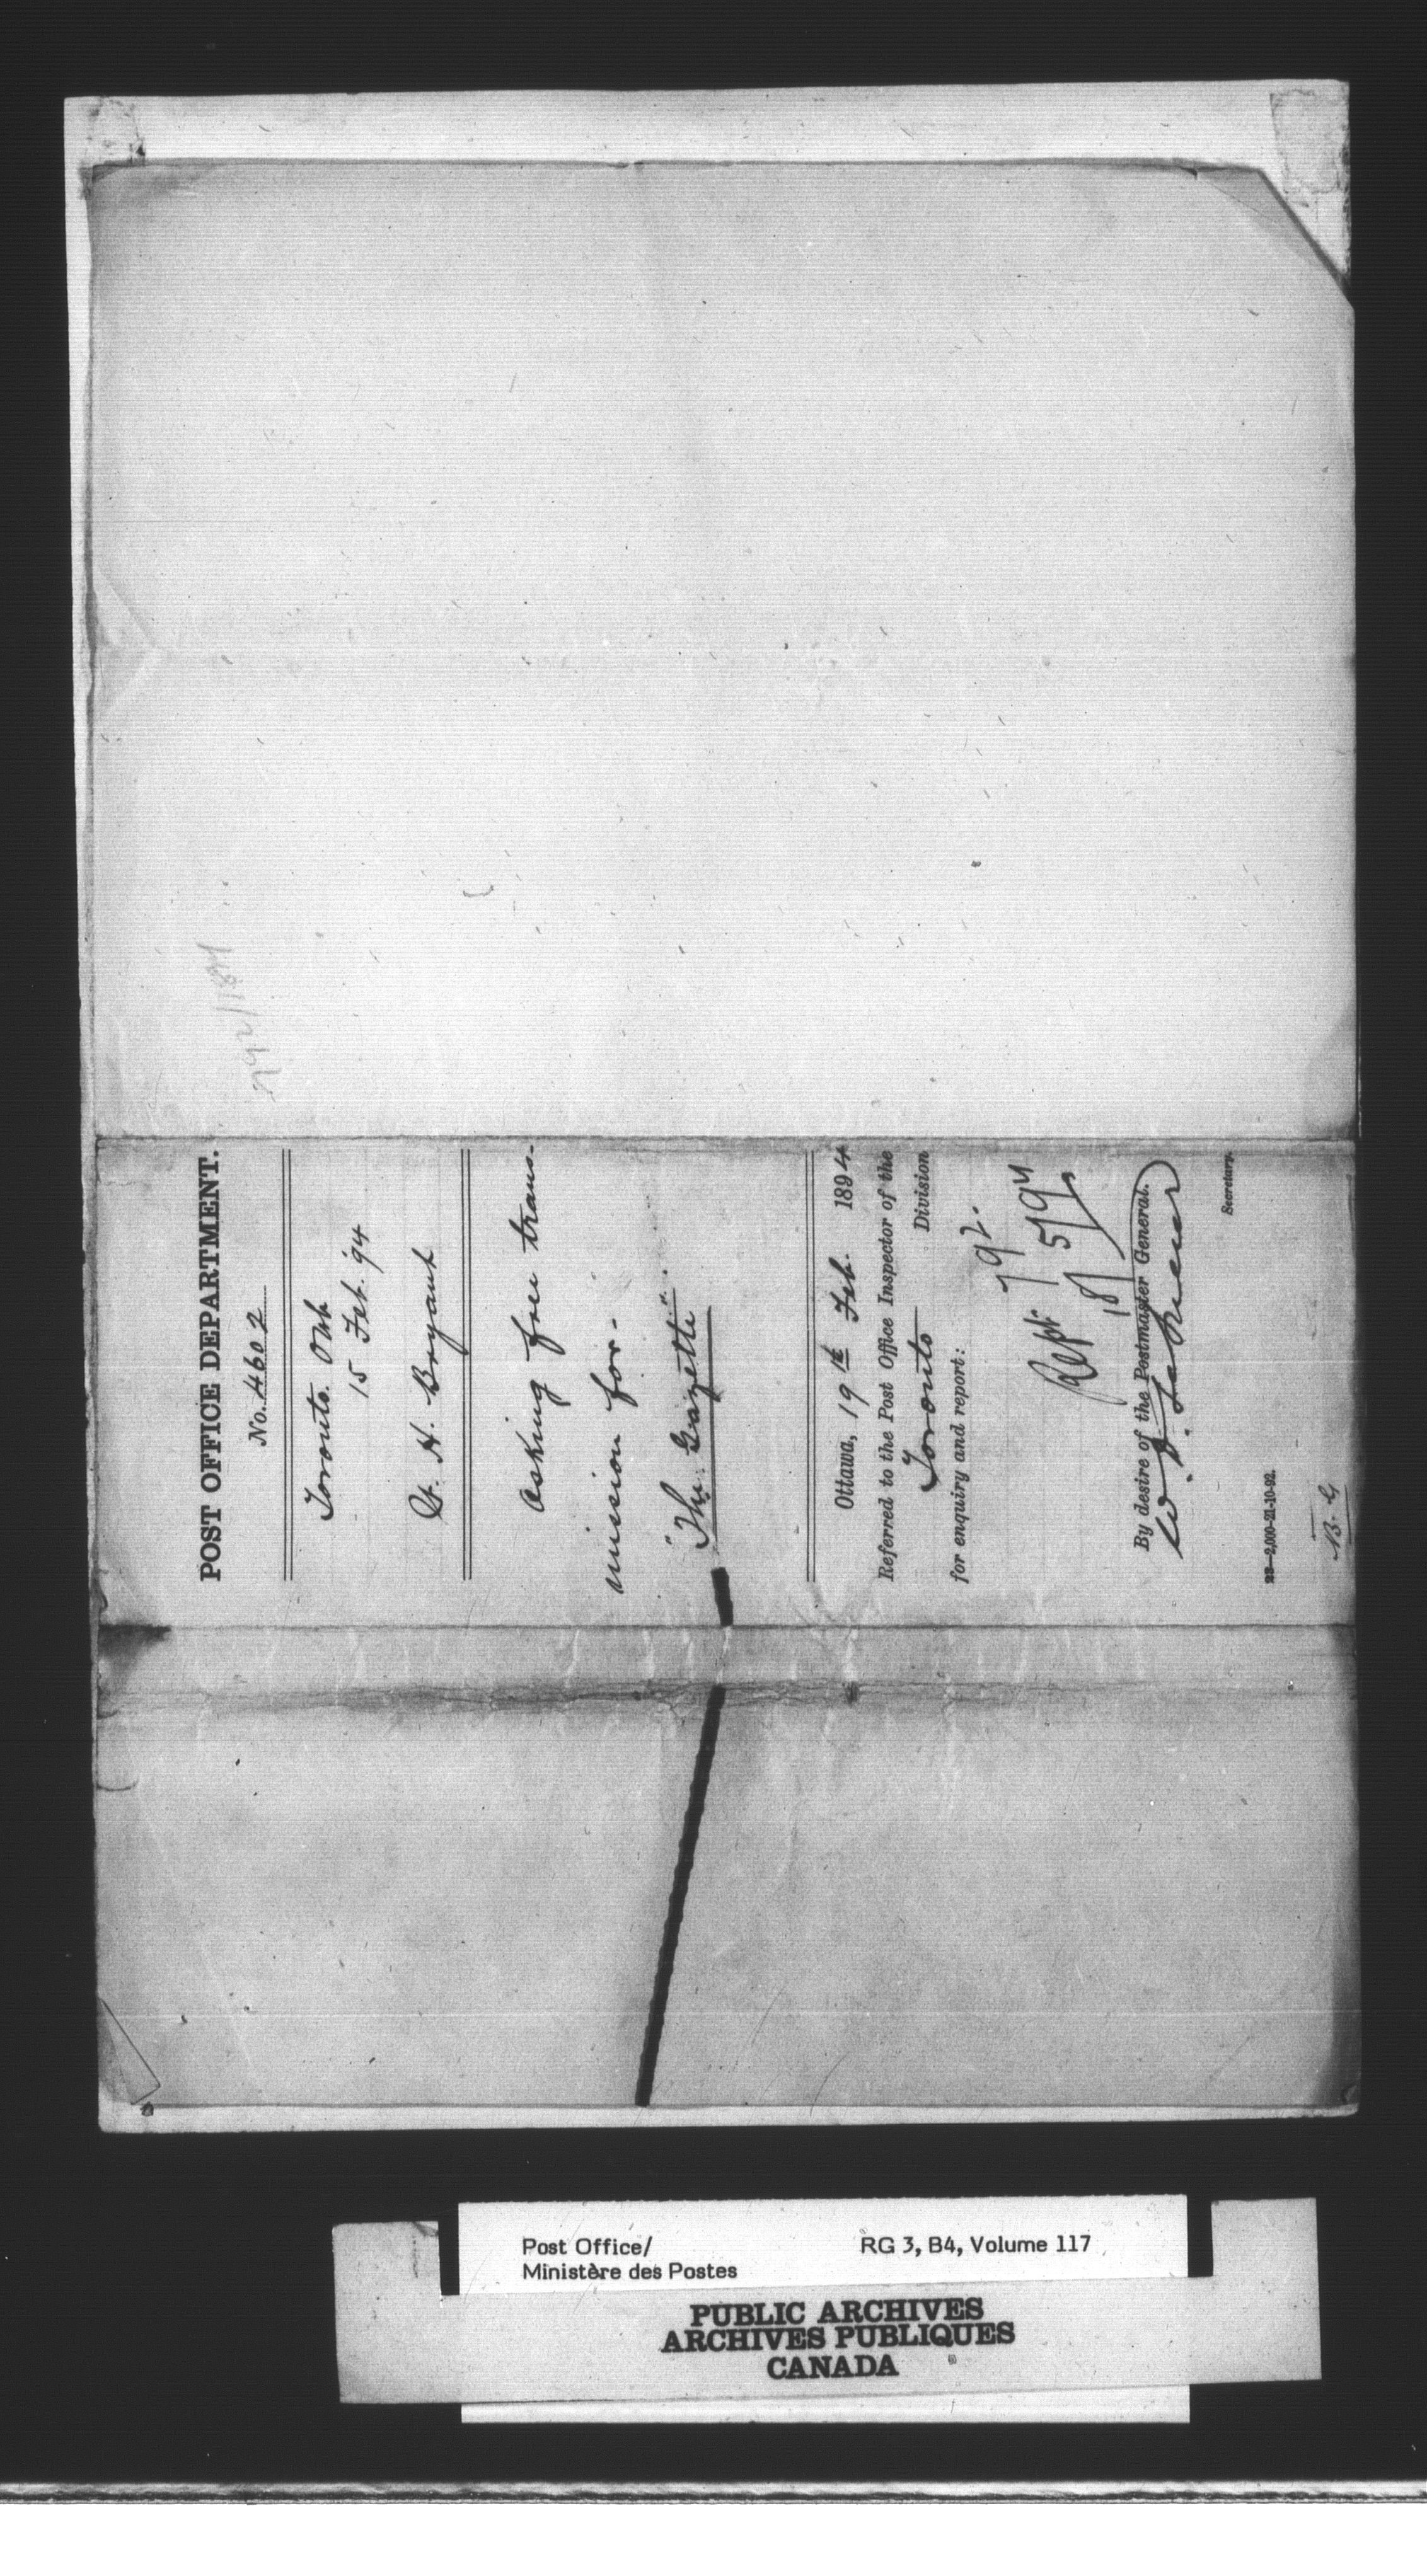 792/1894
POST OFFICE DEPARTMENT.
No. 4602
Toronto. Ont
15 Feb. '94
H. Bryant
Asking free trans-
mission for-
"The Gazette"
Ottawa, 19th Feb. 1894
Referred to the Post Office Inspector of the
Toronto Division
for enquiry and report:
792.
Rept 5/94
By desire of the Postmaster General.
Secretary.
23—2,000-21-10-92.
Post Office/
Ministère des Postes
RG 3, B4, Volume 117
PUBLIC ARCHIVES
ARCHIVES PUBLIQUES
CANADA